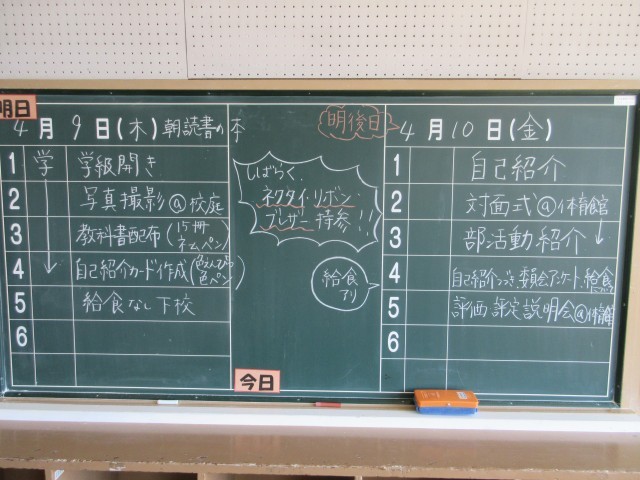 明日
4月9日(木)朝読書の本
1 学 学級開き
2 写真撮影@校庭
3 教科書配布(15冊 ネームペン)
4 自己紹介カード作成(色えんぴつ 色ペン)
5 給食なし下校
6
しばらく、
ネクタイ・リボン・
ブレザー持参!!
給食
アリ
今日
明後日
4月10日(金)
1 自己紹介
2 対面式@体育館
3 部活動紹介
4 自己紹介つづき、委員会アンケート、給食
5 評価・評定説明会@体育館
6